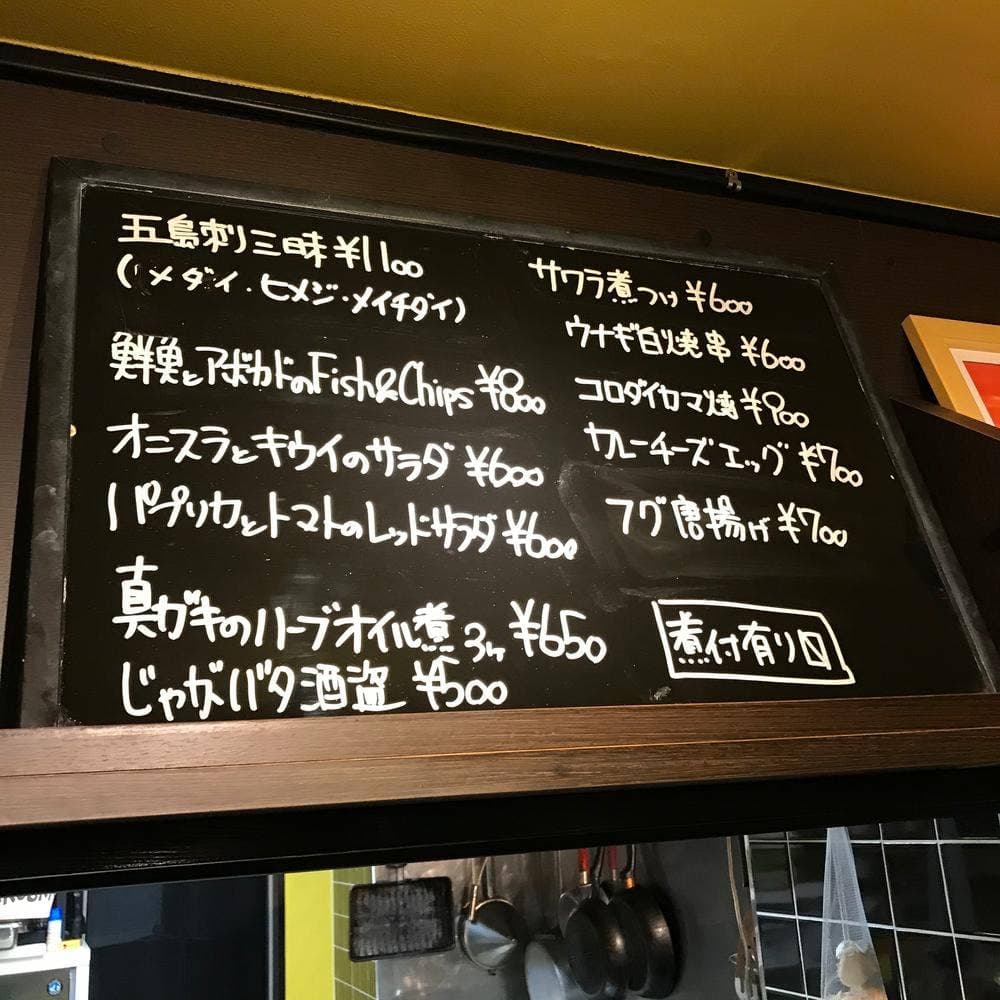 五島刺三昧 ¥1100
(メダイ・ヒメジ・メイチダイ)
鮮魚とアボカドのFish&Chips ¥800
オニスラとキウイのサラダ ¥600
パプリカとトマトのレッドサラダ ¥600
真ガキのハーブオイル煮 3ヶ ¥650
じゃがバタ酒盗 ¥500
サワラ煮つけ ¥600
ウナギ白焼串 ¥600
コロダイカマ焼 ¥900
カレーチーズエッグ ¥700
フグ唐揚げ ¥700
煮付有り〼